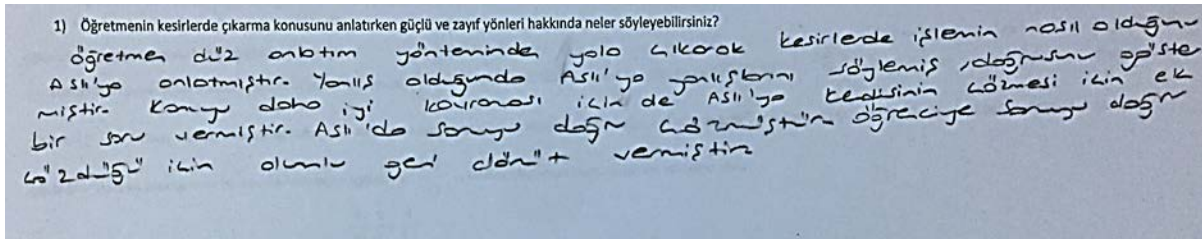 1) Öğretmenin kesirlerde çıkarma konusunu anlatırken güçlü ve zayıf yönleri hakkında neler söyleyebilirsiniz?
öğretmen düz anlatım yönteminden yola çıkarak kesirlerde işlemin nasıl olduğunu
Aslı'ya anlatmıştır. Yanlış olduğunda Aslı'ya yanlışlarını söylemiş, doğrusunu göster
miştir. Konuyu daha iyi kavraması için de Aslı'ya kendisinin çözmesi için ek
bir soru vermiştir. Aslı'da soruyu doğru çözmüştür. öğrenciye soruyu doğru
çözdüğü için olumlu geri dönüt vermiştir.